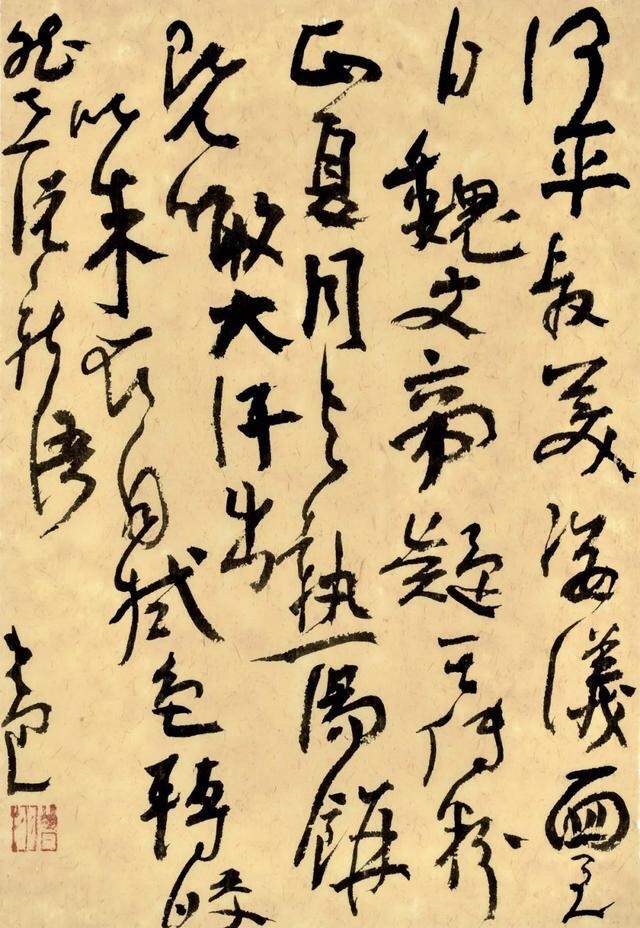 何平叔美姿儀面至
白魏文帝疑其傅粉
正夏月与熱湯餅
既噉大汗出
以朱衣自拭色轉皎
然世説新語